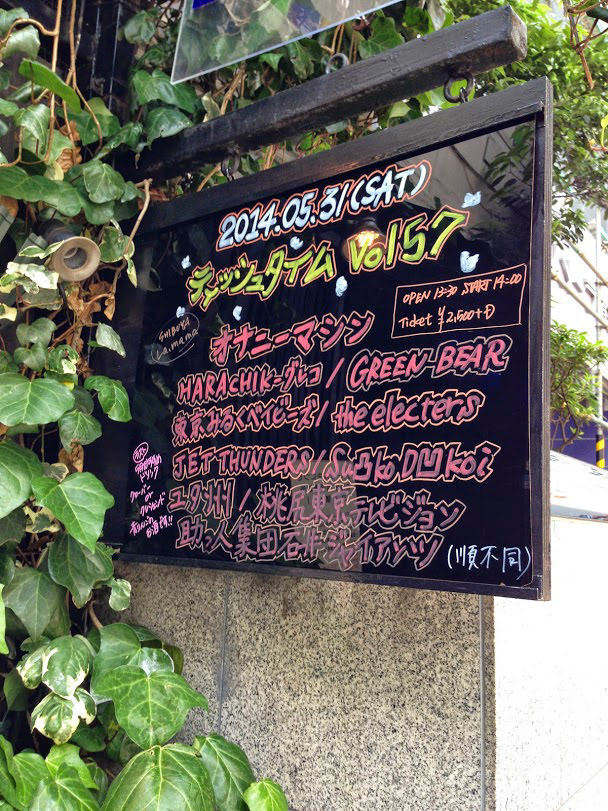 2014.05.31(SAT)
ティッシュタイム Vol 57
OPEN 13:30 START 14:00
Ticket ¥2,500+D
SHIBUYA
La.mama
オナニーマシン
HARACHIK-グレコ / GREEN BEAR
東京みるくベイビーズ / the electers
JET THUNDERS / Su凸ko D凹koi
ユタ州 / 桃尻東京テレビジョン
助っ人集団石井ジャイアンツ
(順不同)
ドリンク
or
お酒